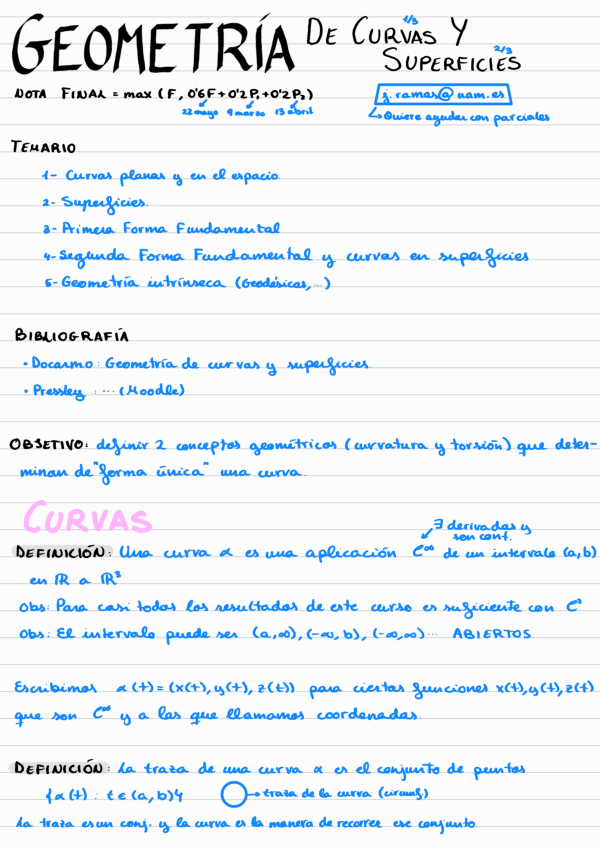 GEOMETRÍA DE CURVAS Y SUPERFICIES
1/3
2/3
NOTA FINAL = max (F, 0'6F+0'2P₁+0'2P₂)
22 mayo 9 marzo 13 abril
j.ramos@uam.es
↳ Quiere ayudar con parciales
TEMARIO
1- Curvas planas y en el espacio.
2- Superficies.
3- Primera Forma Fundamental
4- Segunda Forma Fundamental y curvas en superficies
5- Geometría intrínseca (Geodésicas, ...)
BIBLIOGRAFÍA
• Docarmo: Geometría de curvas y superficies.
• Pressley : ... (Moodle)
OBJETIVO: definir 2 conceptos geométricos (curvatura y torsión) que deter-
minan de "forma única" una curva.
CURVAS
∃ derivadas y
son cont.
DEFINICIÓN: Una curva α es una aplicación C^∞ de un intervalo (a,b)
en ℝ a ℝ³
Obs: Para casi todos los resultados de este curso es suficiente con C²
Obs: El intervalo puede ser (a,∞), (-∞,b), (-∞,∞)... ABIERTOS
Escribimos α(t)=(x(t), y(t), z(t)) para ciertas funciones x(t), y(t), z(t)
que son C^∞ y a las que llamamos coordenadas.
DEFINICIÓN: La traza de una curva α es el conjunto de puntos
{α(t) : t ∈ (a,b)} → traza de la curva (circunf.)
La traza es un conj. y la curva es la manera de recorrer ese conjunto.